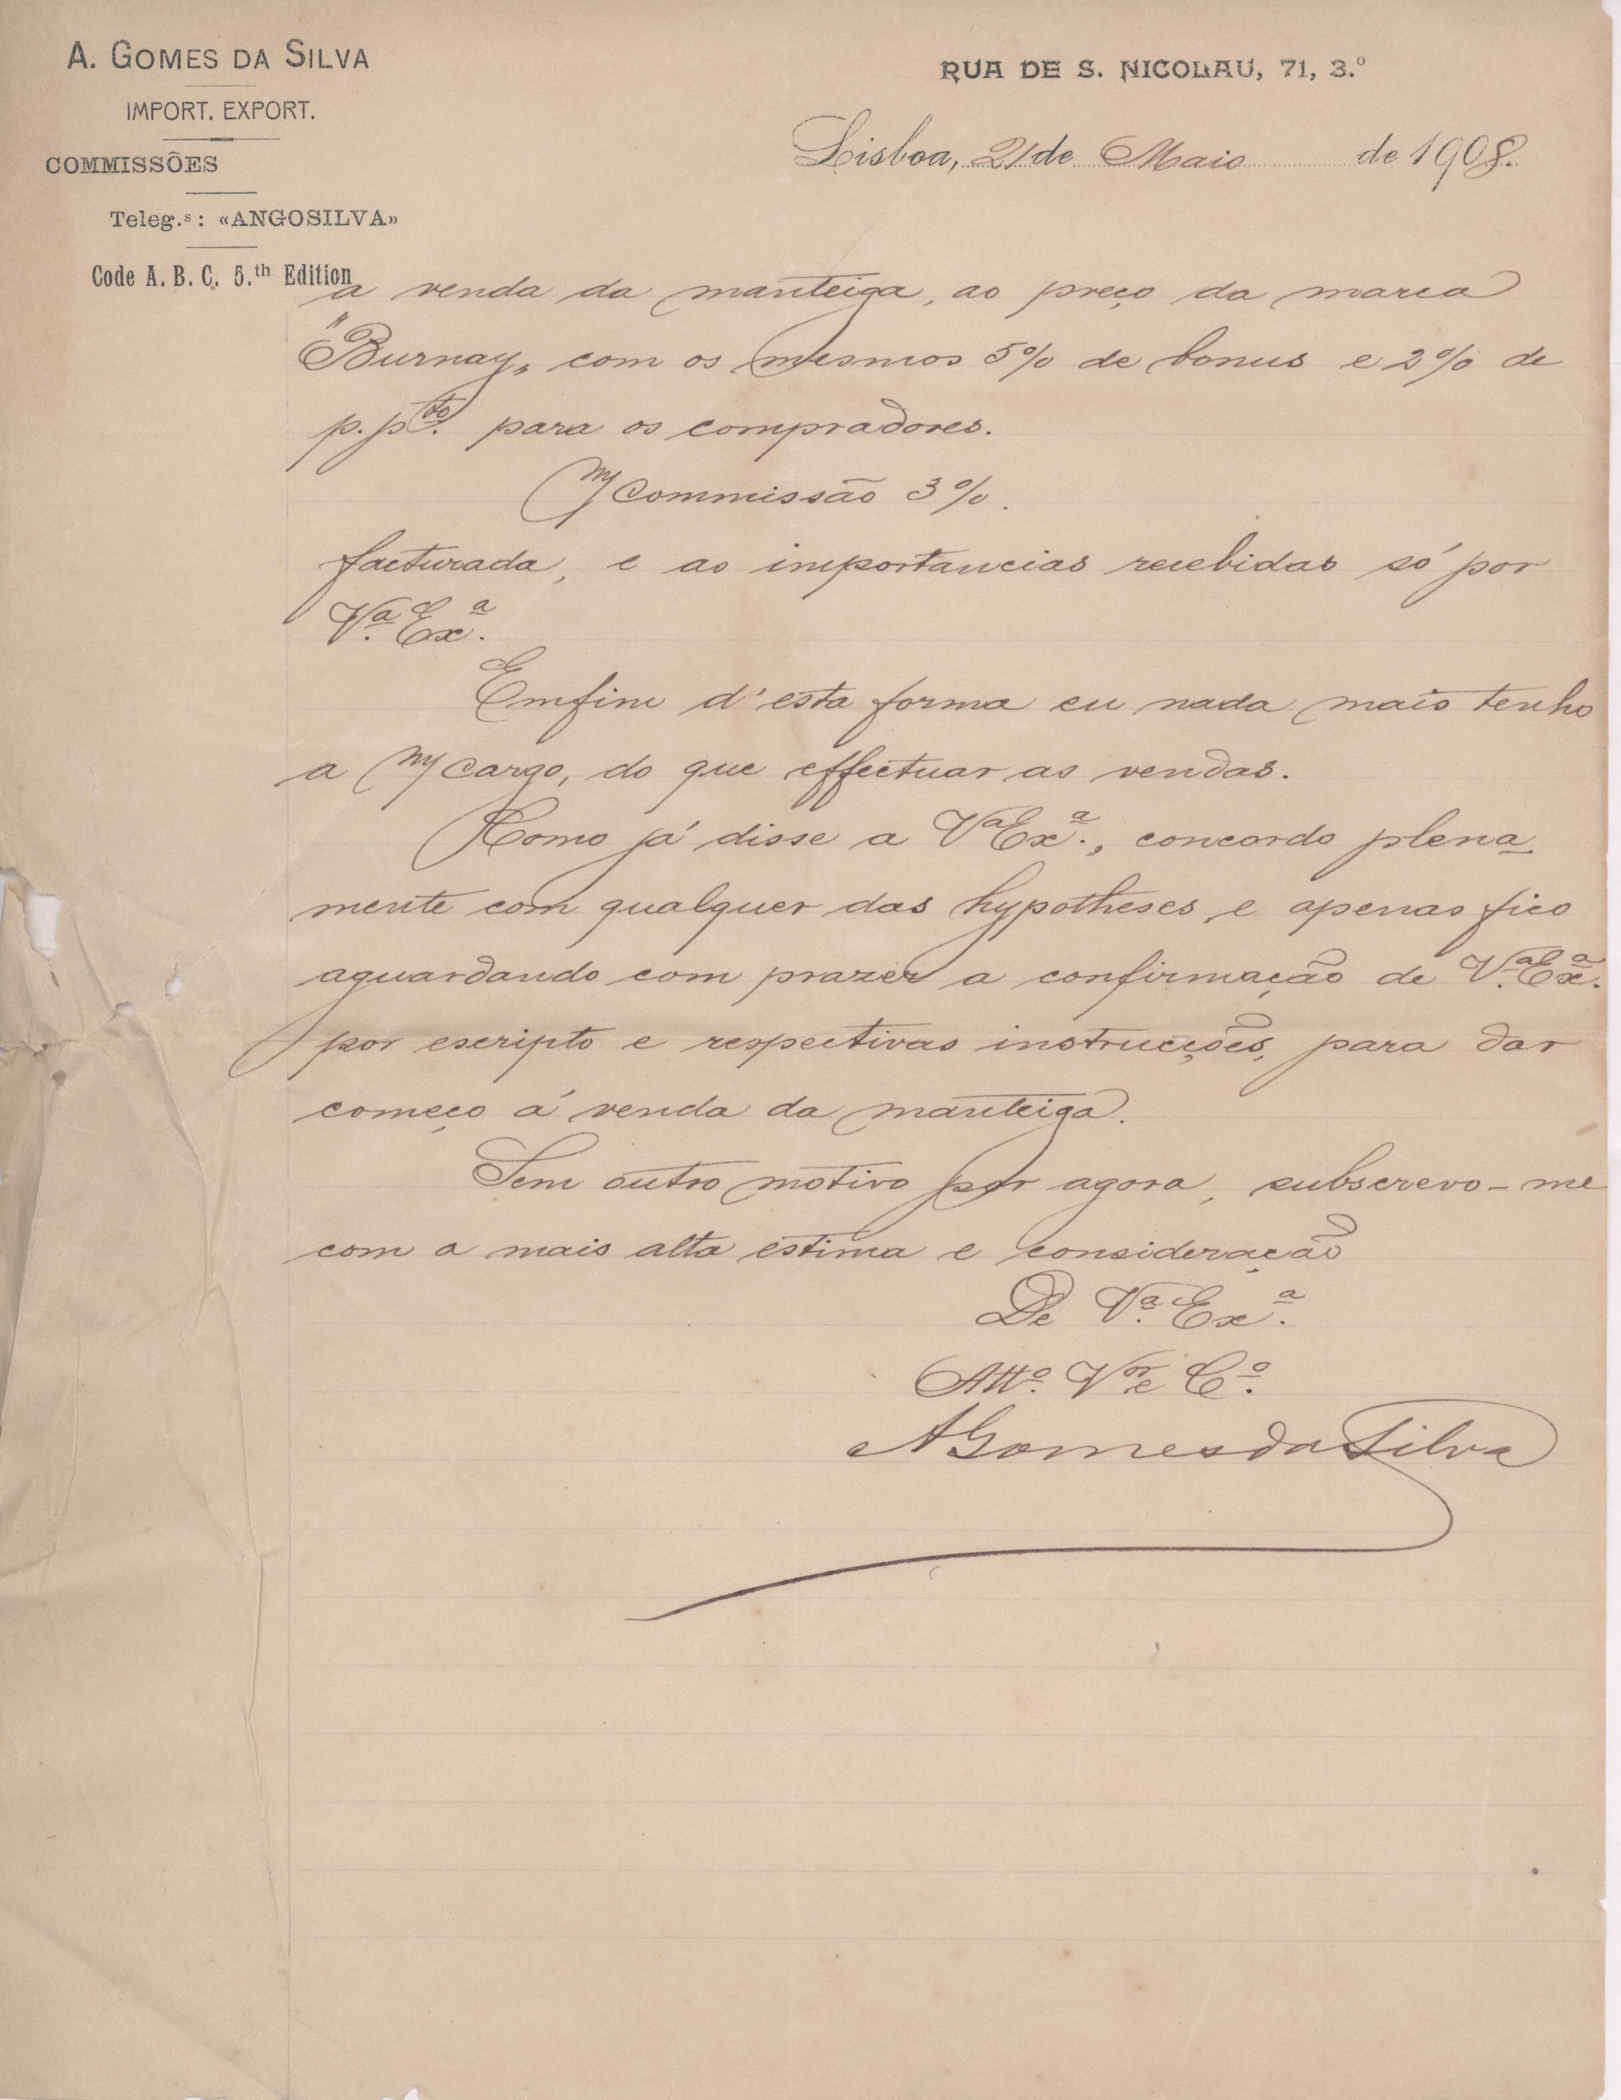 A. GOMES DA SILVA
IMPORT. EXPORT.
COMMISSÕES
Teleg.s: «ANGOSILVA»
Code A. B. C. 5.th Edition
RUA DE S. NICOLAU, 71, 3.º
Lisboa, 21 de Maio de 1908.
a venda da manteiga, ao preço da marca
"Burnay„ com os mesmos 5% de bonus e 2% de
p. pto. para os compradores.
My Commissão 3%.
facturada, e as importancias recebidas só por
V.ª Ex.ª
Emfim d'esta forma eu nada mais tenho
a My cargo, do que effectuar as vendas.
Como já disse a Vª Ex.ª, concordo plena
mente com qualquer das hypotheses, e apenas fico
aguardando com prazer a confirmação de V.ª Ex.ª
por escripto e respectivas instrucções, para dar
começo á venda da manteiga.
Sem outro motivo por agora, subscrevo-me
com a mais alta estima e consideração
De V.ª Ex.ª
Att.º Vor e C.º
AGomes da Silva